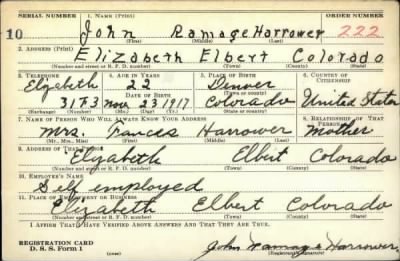 SERIAL NUMBER 1. NAME (Print) ORDER NUMBER
10 John Ramage Harrower 222
(First) (Middle) (Last)
2. ADDRESS (Print)
Elizabeth Elbert Colorado
(Number and street or R. F. D. number) (Town) (County) (State)
3. TELEPHONE 4. AGE IN YEARS 5. PLACE OF BIRTH 6. COUNTRY OF CITIZENSHIP
Elizabeth 22 Denver
DATE OF BIRTH
31F3 Nov 23 1917 Colorado United States
(Exchange) (Number) (Mo.) (Day) (Yr.) (State or country)
7. NAME OF PERSON WHO WILL ALWAYS KNOW YOUR ADDRESS 8. RELATIONSHIP OF THAT PERSON
Mrs. Frances Harrower Mother
(Mr., Mrs., Miss) (First) (Middle) (Last)
9. ADDRESS OF THAT PERSON
Elizabeth Elbert Colorado
(Number and street or R. F. D. number) (Town) (County) (State)
10. EMPLOYER'S NAME
Self employed
11. PLACE OF EMPLOYMENT OR BUSINESS
Elizabeth Elbert Colorado
(Number and street or R. F. D. number) (Town) (County) (State)
I AFFIRM THAT I HAVE VERIFIED ABOVE ANSWERS AND THAT THEY ARE TRUE.
REGISTRATION CARD
D. S. S. Form 1 (over) John Ramage Harrower
(Registrant's signature)